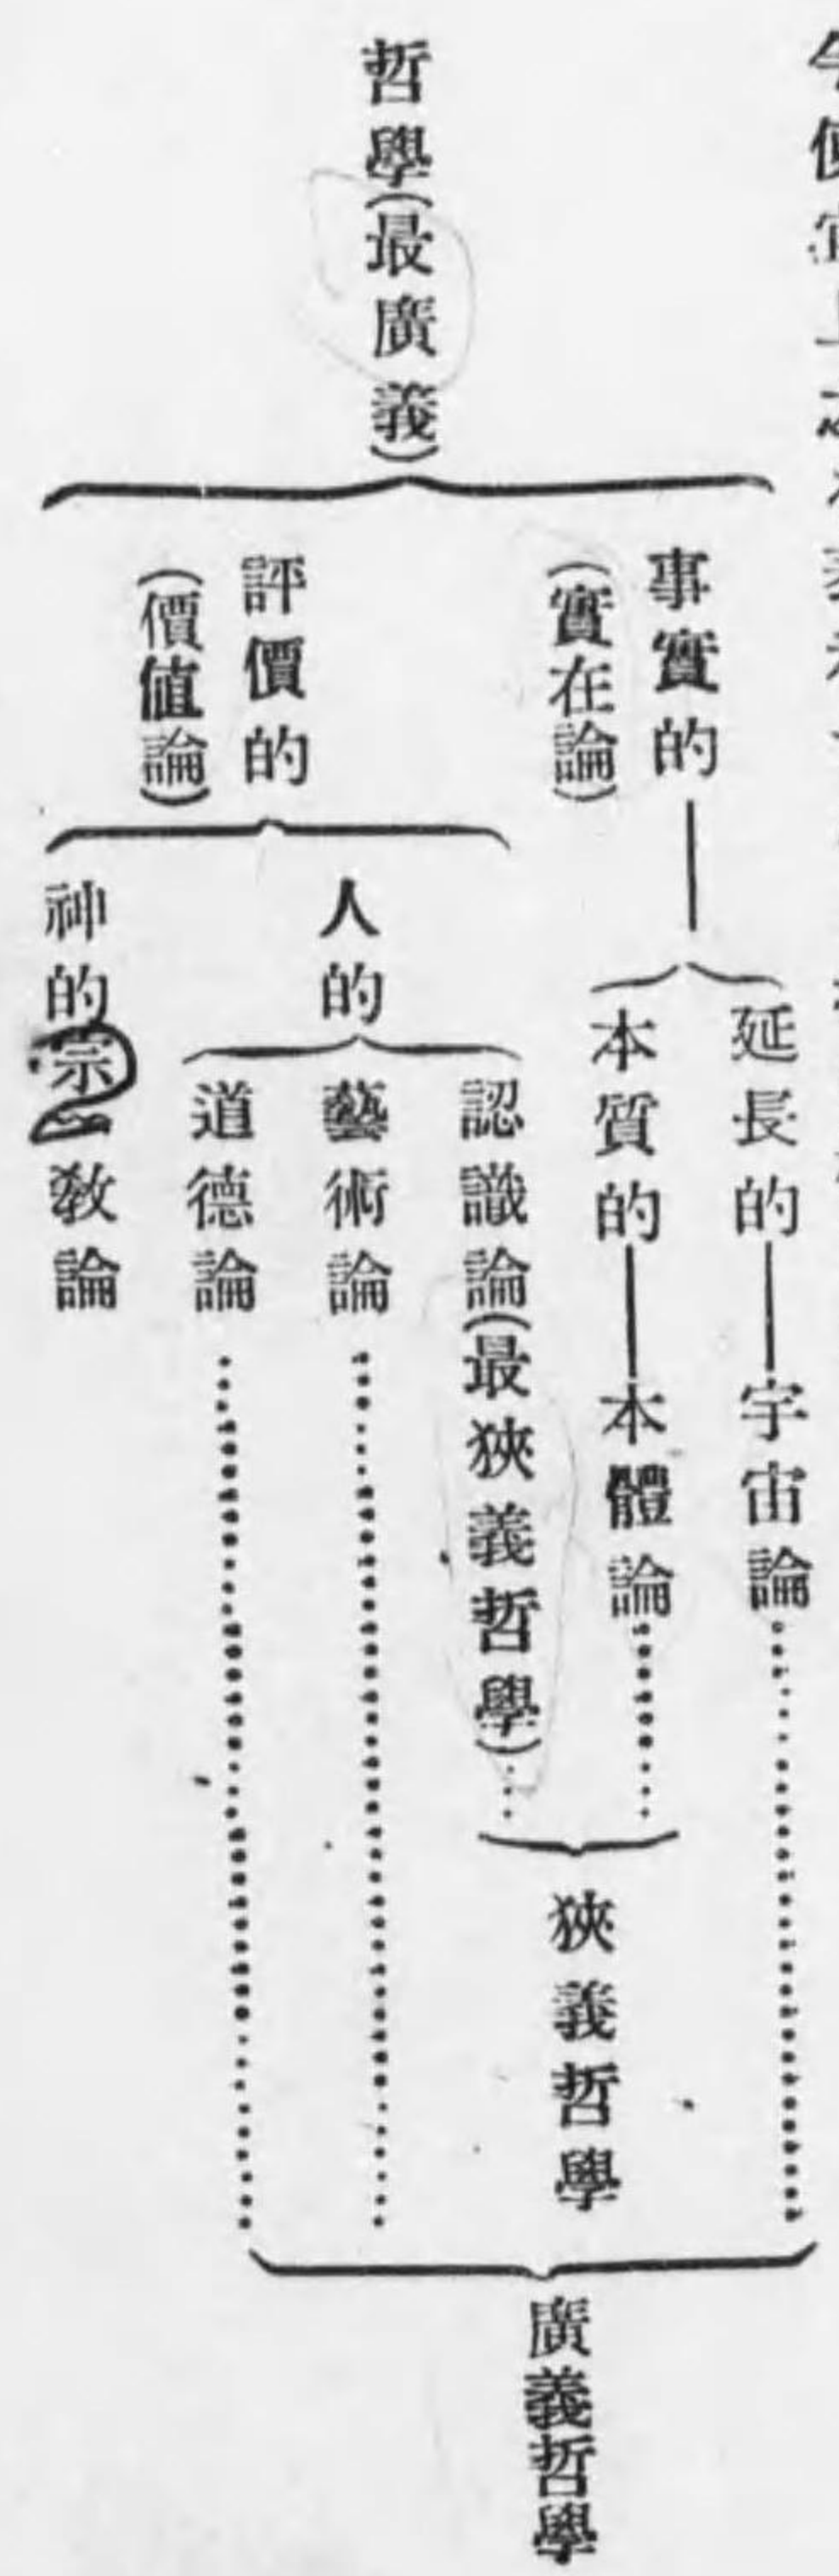 哲學(最廣義)
事實的
(實在論)
延長的
宇宙論
本質的
本體論
評價的
(價値論)
人的
認識論(最狹義哲學)
藝術論
道德論
神的
宗敎論
狹義哲學
廣義哲學